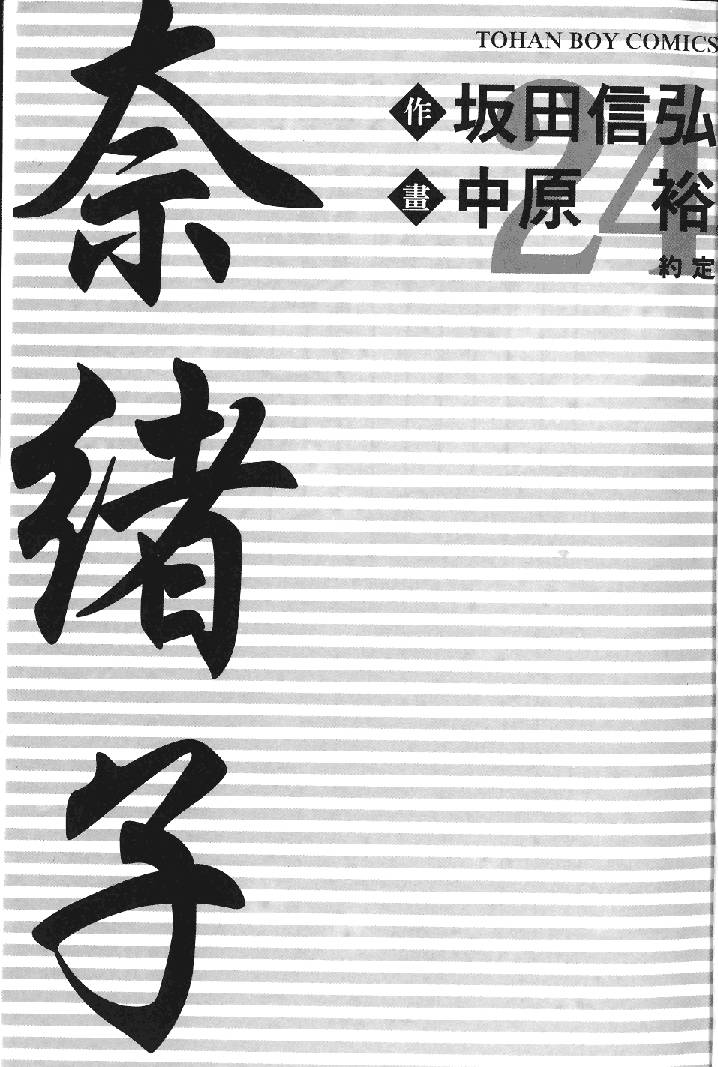 TOHAN BOY COMICS
24
作 坂田信弘
畫 中原 裕
約定
奈緒子